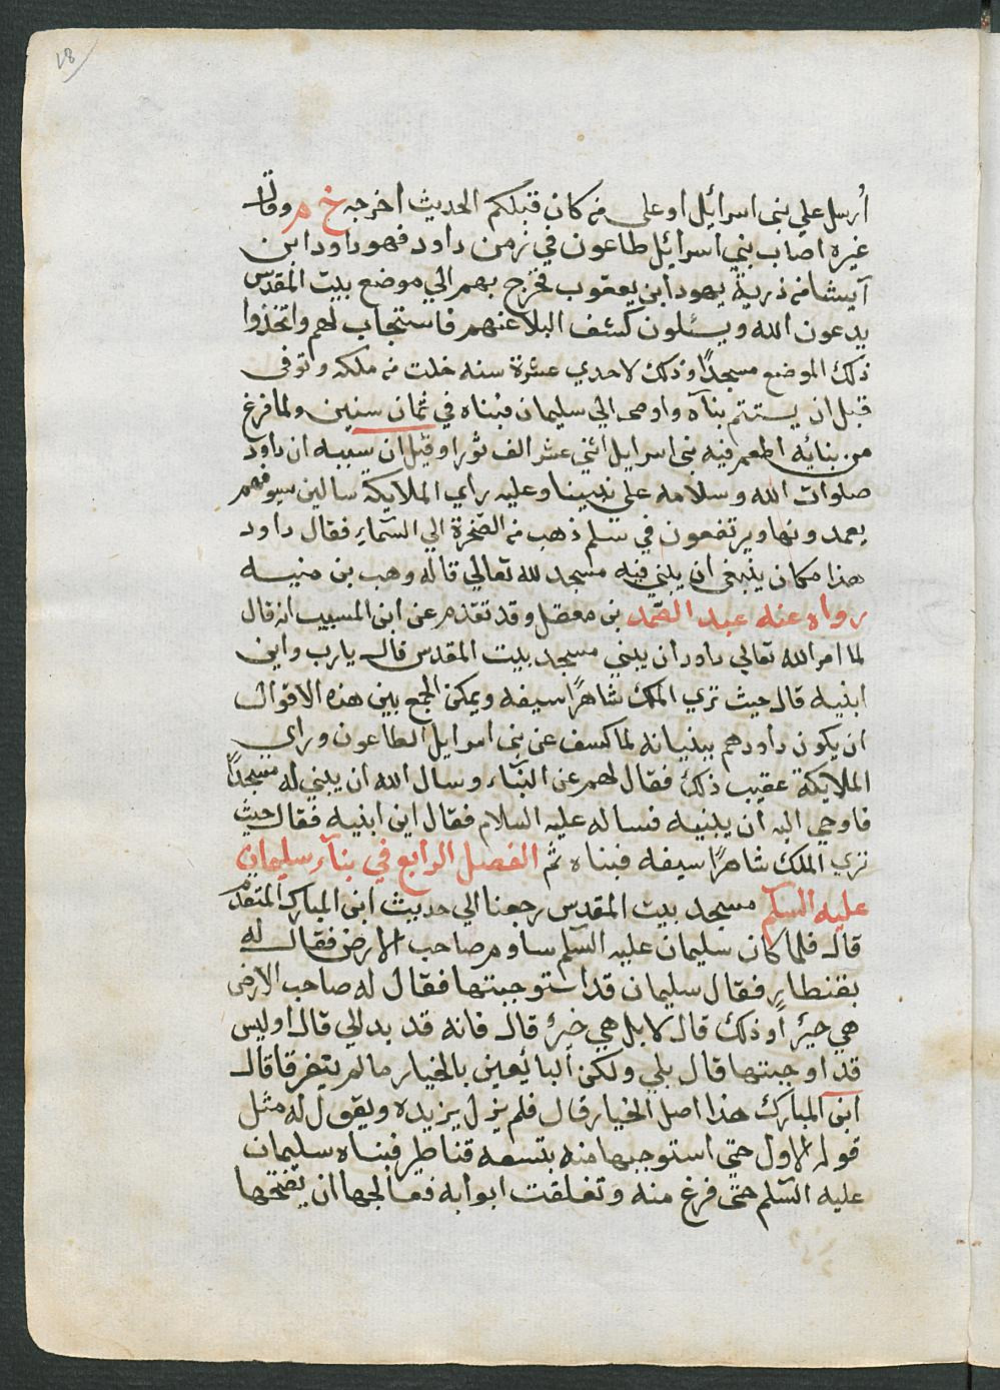 أرسل علي بنى اسرائيل او على من كان قبلكم الحديث اخرجه خ م وقال
غيره اصاب بني اسرائيل طاعون في زمن داود فهو داود ابن
آيشا من ذرية يهودا بن يعقوب فخرج بهم الي موضع بيت المقدس
يدعون الله ويسئلون كشف البلا عنهم فاستجاب لهم واتخذوا
ذلك الموضع مسجدًا وذلك لاحدي عشرة سنه خلت من ملكه وتوفى
قبل ان يستتم بنآه واوصى الي سليمان فبناه في ثمان سنين ولما فرغ
من بنائه اطعم فيه بنى اسرايل اثني عشر الف ثورا وقيل ان سببه ان داود
صلوات الله وسلامه على نبينا وعليه راي الملايكة سالين سيوفهم
يعمدونها ويرتفعون في سلم ذهب من الصخرة الي السماء فقال داود
هذا مكان ينبغى ان يبني فيه مسجد لله تعالي قاله وهب بن منبه
رواه عنه عبد الصمد بن معقل وقد تقدم عن ابن المسيب انه قال
لما امر الله تعالي داود ان يبني مسجد بيت المقدس قال يارب واين
ابنيه قال حيث تري الملك شاهرًا سيفه ويمكن الجمع بين هذه الاقوال
ان يكون داود هم ببنيانه لما كشف عن بنى اسرايل الطاعون وراي
الملايكة عقيب ذلك فقال لهم عن البناء وسال الله ان يبني له مسجدًا
فاوحي اليه ان يبنيه فساله عليه السلام فقال اين ابنيه فقال حيث
تري الملك شاهرًا سيفه فبناه ثم الفصل الرابع في بنآء سليمان
عليه السلم مسجد بيت المقدس رجعنا الي حديث ابن المبارك المتقدم
قال فلما كان سليمان عليه السلم ساوم صاحب الارض فقال له
بقنطار فقال سليمان قد استوجبتها فقال له صاحب الارض
هي خيرٌ او ذلك قال لا بل هي خيرٌ قال فانه قد بدالي قال اوليس
قد اوجبتها قال بلي ولكن البائعين بالخيار ما لم يتفرقا قال
ابن المبارك هذا اصل الخيار قال فلم يزل يزيده ويقول له مثل
قوله الاول حتي استوجبها منه بتسعه قناطير فبناه سليمان
عليه السلم حتى فرغ منه وتغلقت ابوابه فعالجها ان يفتحها